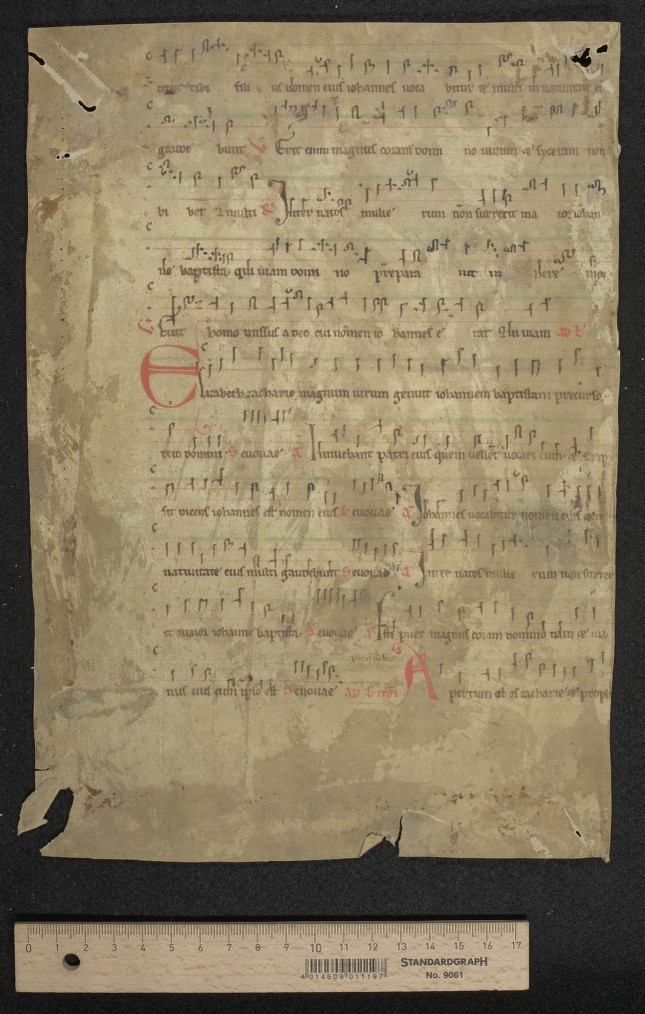 us nomen eius iohannes voca bitur & multi in nativitate ei
gaude bunt V Erit enim magnus coram domi no vinum & syceram non
bi bet & multi R Inter natos mulie rum non surrexit ma ior iohan
ne baptista qui viam domi no prepara vit in here mo
V Fuit homo missus a deo cui nomen io hannes e rat Qui viam
Elizabeth zacharie magnum virum genuit iohannem baptistam precurso
rem domini S evovae A Innuebant patri eius quem vellet vocari eum & scrip
sit dicens iohannes est nomen eius S evovae A Johannes vocabitur nomen eius
nativitate eius multi gaudebunt S evovae A Inter natos mulie rum non surrex
it maior iohanne baptista S evovae A Iste puer magnus coram domino nam & ma
nus eius cum ipso est S evovae Apertum est os zacharie & proph
0 1 2 3 4 5 6 7 8 9 10 11 12 13 14 15 16 17
STANDARDGRAPH
No. 9061
4 014509 011197